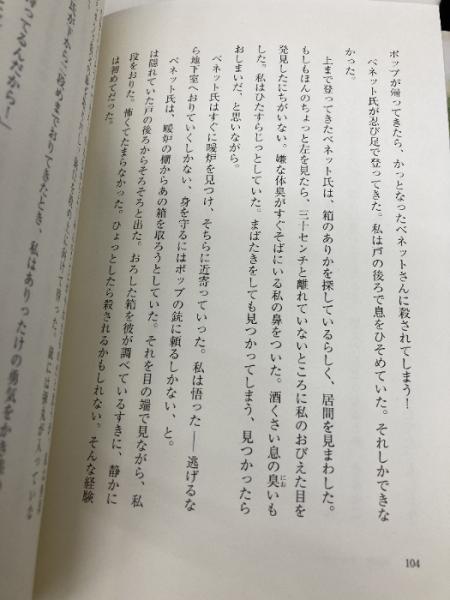 ポップが帰ってきたら、かっとなったベネットさんに殺されてしまう！
ベネット氏が忍び足で登ってきた。私は戸の後ろで息をひそめていた。それしかできな
かった。
上まで登ってきたベネット氏は、箱のありかを探しているらしく、居間を見まわした。
もしもほんのちょっと左を見たら、三十センチと離れていないところに私のおびえた目を
発見したにちがいない。嫌な体臭がすぐそばにいる私の鼻をついた。酒くさい息の臭いも
した。私はひたすらじっとしていた。まばたきをしても見つかってしまう、見つかったら
おしまいだ、と思いながら。
ベネット氏はすぐに暖炉を見つけ、そちらに近寄っていった。私は悟った――逃げるな
ら地下室へおりていくしかない、身を守るにはポップの銃に頼るしかない、と。
ベネット氏は、暖炉の棚からあの箱を取ろうとしていた。それを目の端で見ながら、私
は隠れていた戸の後ろからそろそろと出た。おろした箱を彼が調べているすきに、静かに
段をおりた。怖くてたまらなかった。ひょっとしたら殺されるかもしれない。そんな経験
は初めてだった。
におりてきたとき、私はありったけの勇気をかき集
ってるんだから！」
104